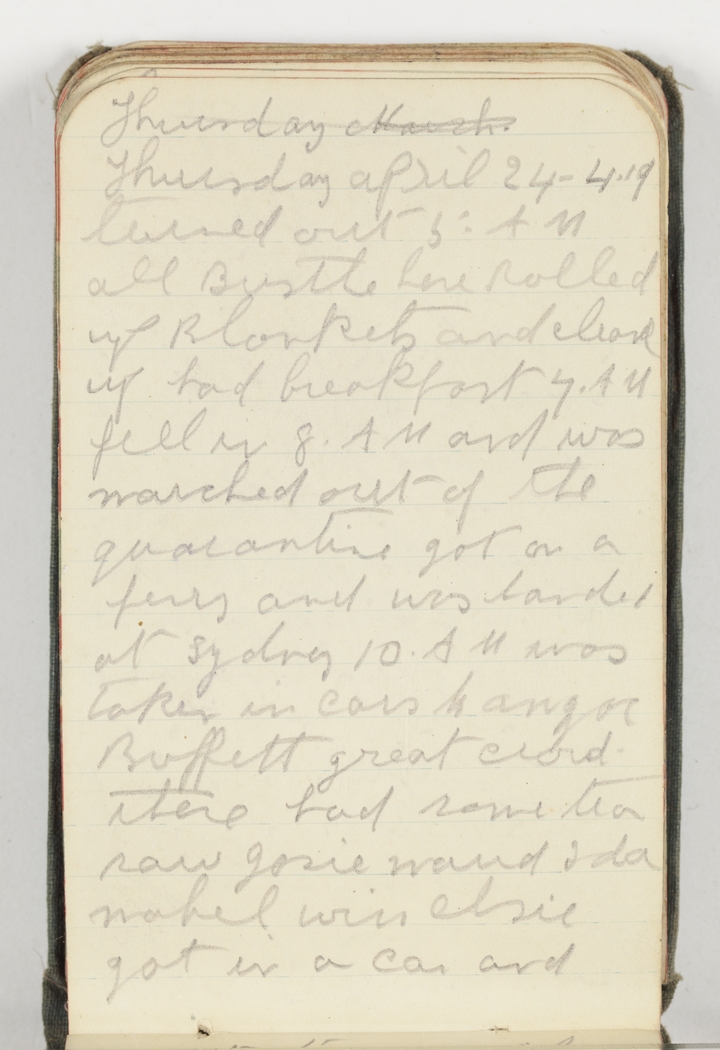 Thursday March.
Thursday april 24-4.19
turned out 5: A M
all Bustle here Rolled
up Blankets and cleand
up had breakfast 7. A M
fell in 8. A M and was
marched out of the
quarantine got on a
ferry and was landed
at Sydney 10. A M was
taken in cars to anzac
Buffett great crowd
there had some tea
saw Josie maud Ida
mabel win elsie
got in a car and